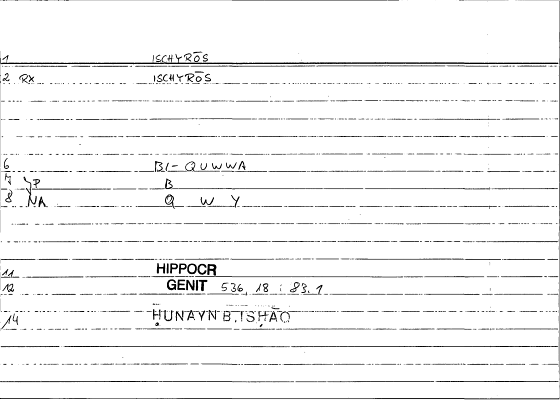 1 ISCHYRŌS
2 RX ISCHYRŌS
6 BI- QUWWA
7 YP B
8 NA Q W Y
11 HIPPOCR
12 GENIT 536, 18 : 83.1
14 ḤUNAYN B. ISḤĀQ